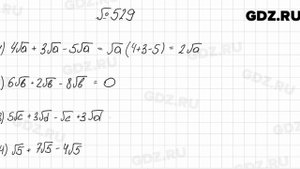 № 529
GDZ.RU
1) 4√a + 3√a - 5√a = √a (4+3-5) = 2√a
2) 6√b + 2√b - 8√b = 0
3) 5√c + 3√d - √c + 3√d
4) √5 + 7√5 - 4√5